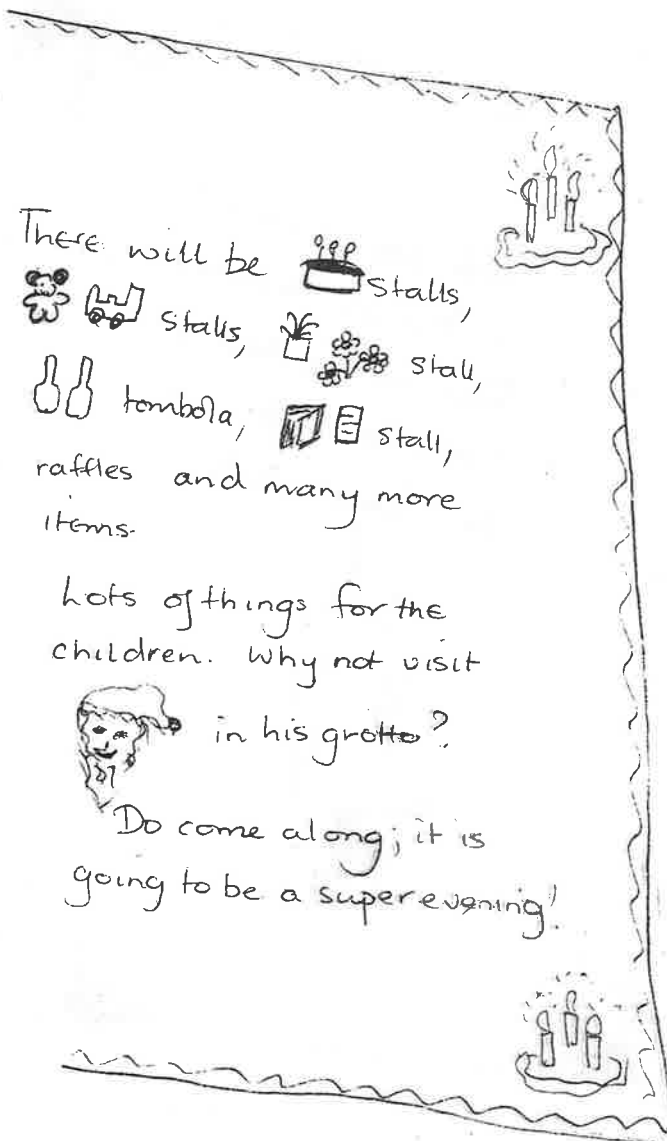 There will be stalls,
stalls, stall,
tombola, stall,
raffles and many more
items.
Lots of things for the
children. Why not visit
in his grotto?
Do come along; it is
going to be a super evening!